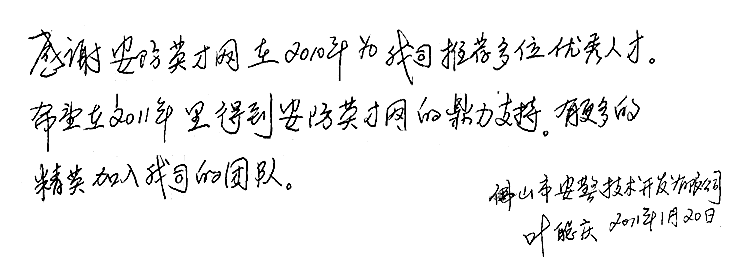 感谢安防英才网在2010年为我司推荐多位优秀人才。
希望在2011年里得到安防英才网的鼎力支持。有更多的
精英加入我司的团队。
佛山市安警技术开发有限公司
叶聪庆 2011年1月20日